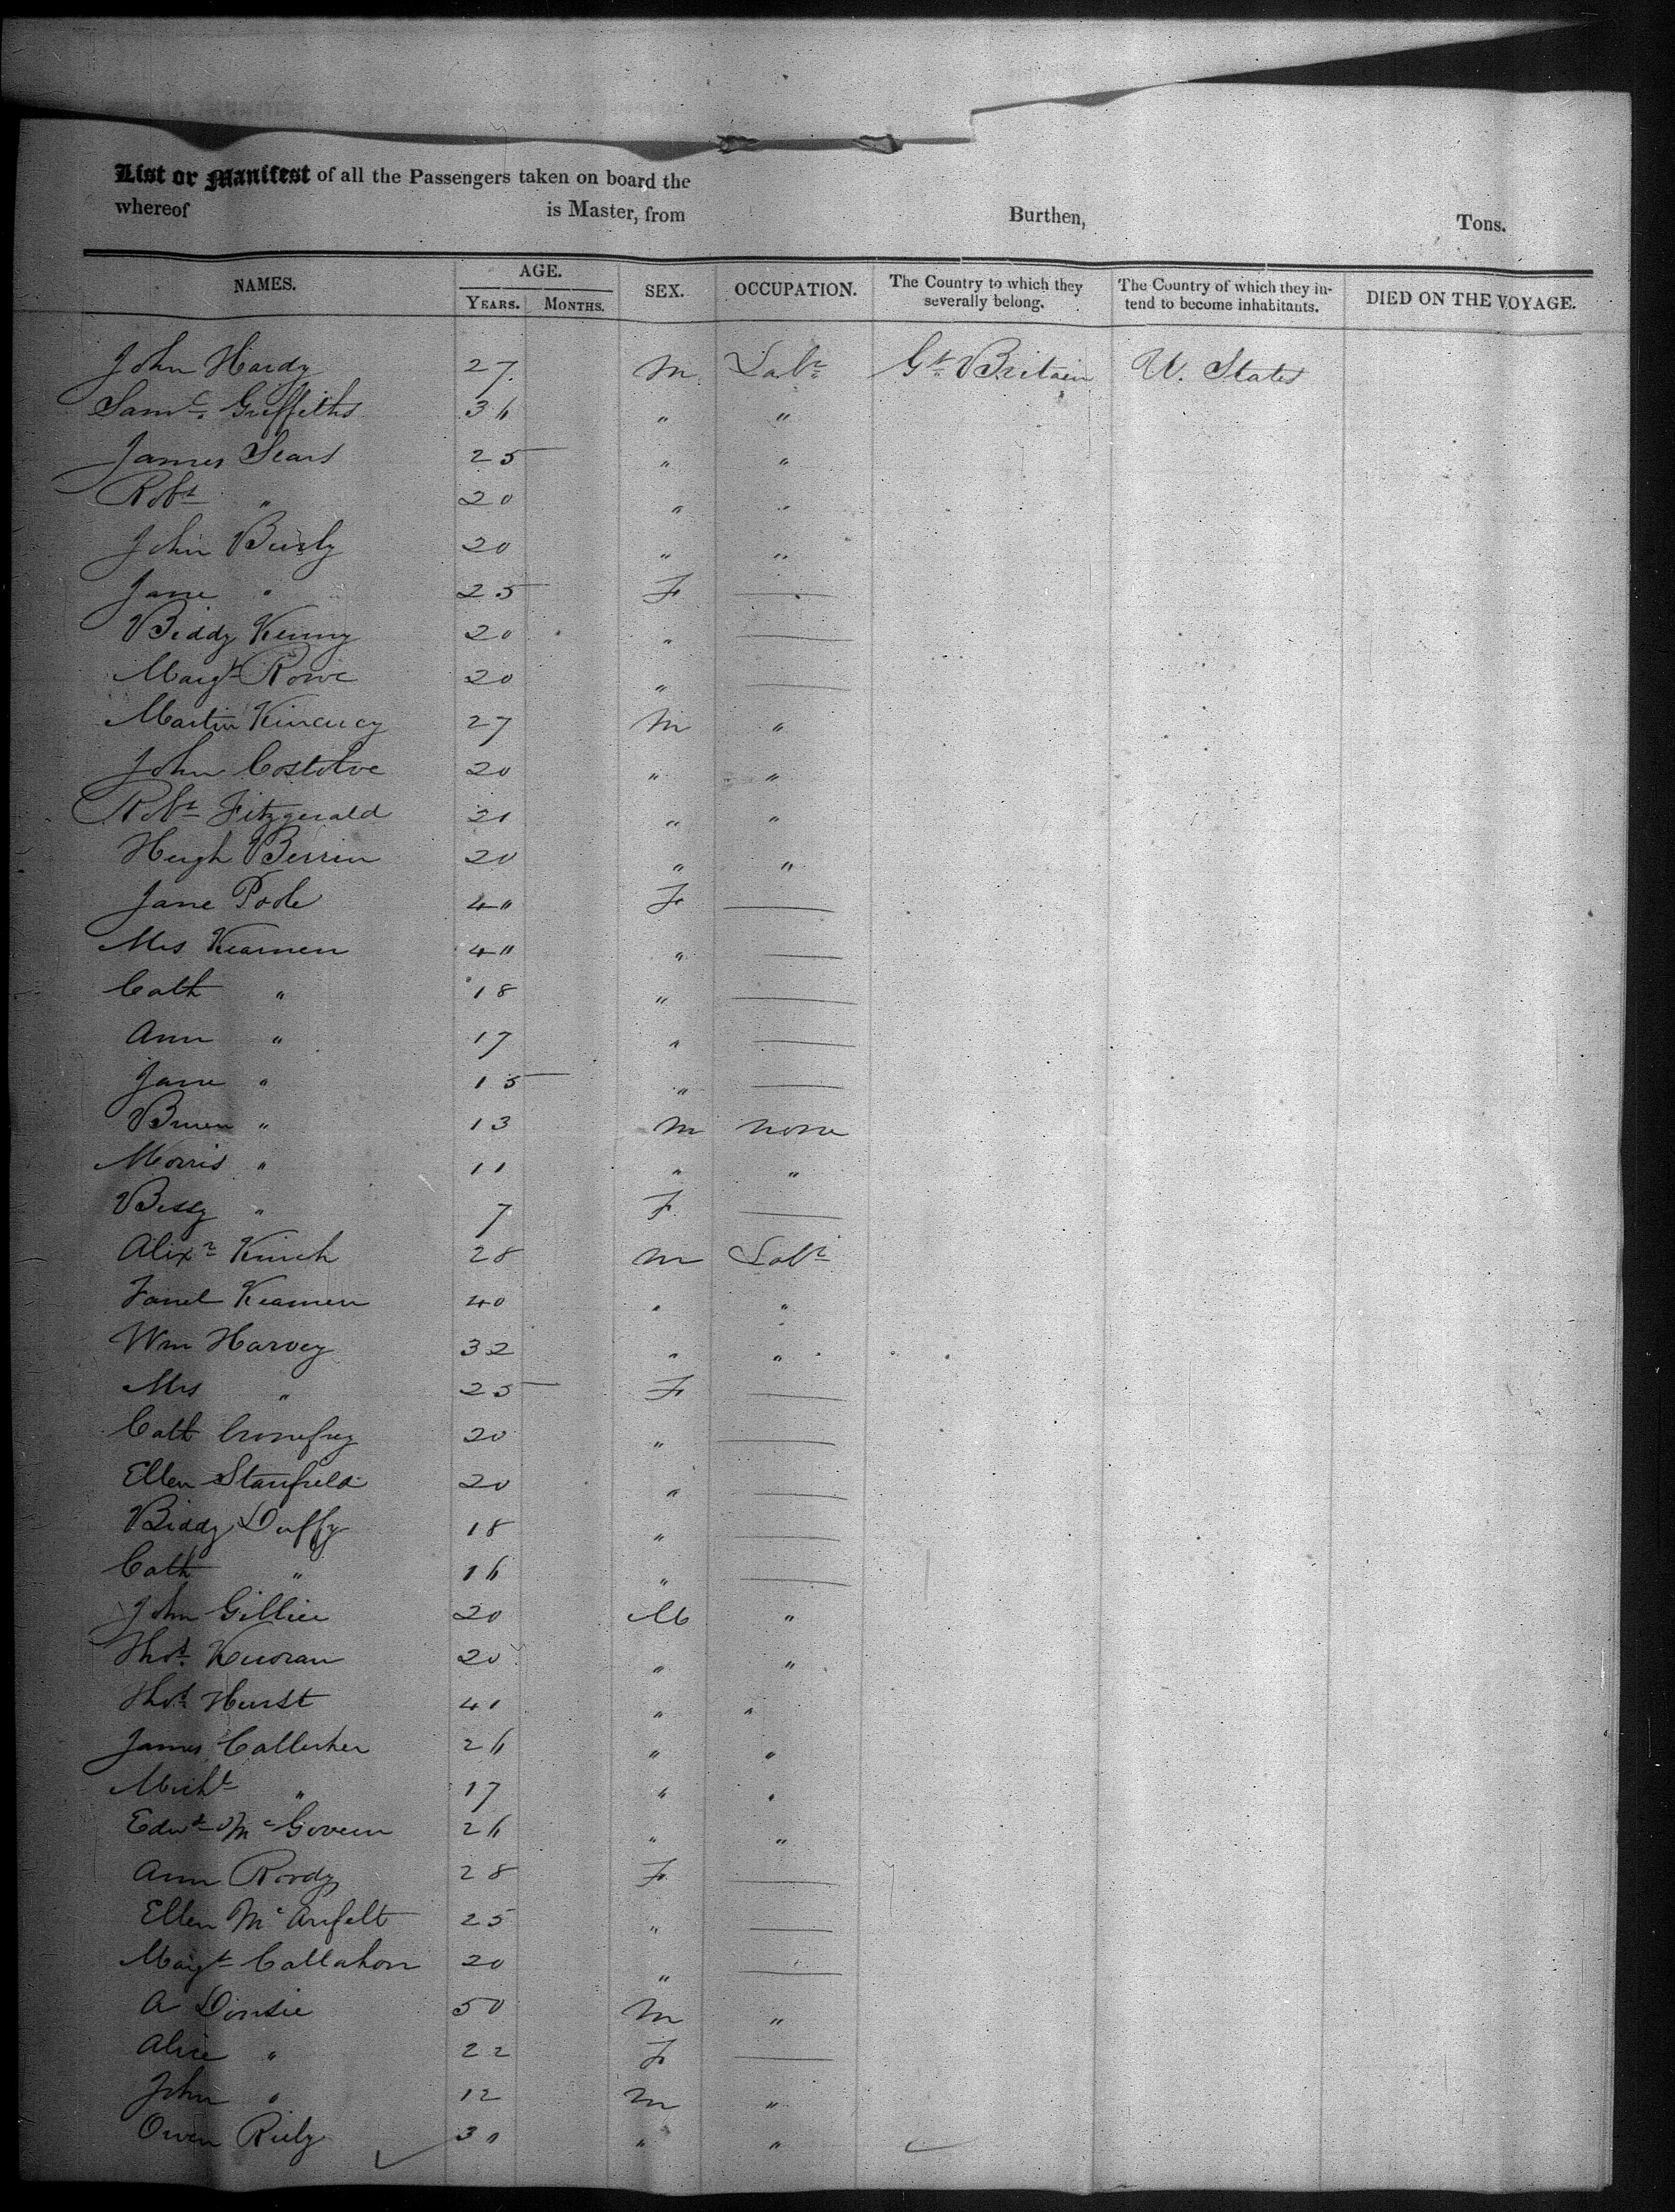 List or Manifest of all the Passengers taken on board the
whereof is Master, from Burthen, Tons.
NAMES. AGE. YEARS. MONTHS. SEX. OCCUPATION. The Country to which they severally belong. The Country of which they intend to become inhabitants. DIED ON THE VOYAGE.
John Hardy 27 M Labr Gt Britain U. States
Saml Griffiths 36 " "
James Sears 25 " "
Robt " 20 " "
John 20 " "
Jane " 25 F —
Biddy Kenny 20 " —
Margt Rowe 20 " —
Martin 27 M "
John Costoloe 20 " "
Robt Fitzgerald 21 " "
Hugh 20 " "
Jane Poole 40 F —
Mrs Kearnen 40 " —
Cath " 18 " —
Ann " 17 " —
Jane " 15 " —
" 13 M none
Morris " 11 " "
Bessy " 7 F —
Alixr Kinch 28 M Labr
Kearnen 40 " "
Wm Harvey 32 " "
Mrs " 25 F —
Cath 20 " —
Ellen Stanfield 20 " —
Biddy Duffy 18 " —
Cath " 16 " —
John 20 M "
Thos 20 " "
Thos Hurst 41 " "
James 26 " "
Michl " 17 " "
Edwd McGovern 26 " "
Ann 28 F —
Ellen 25 " —
Margt Callahon 20 " —
A 50 M "
Alice " 22 F —
John " 12 M "
Owen Riely 30 " "